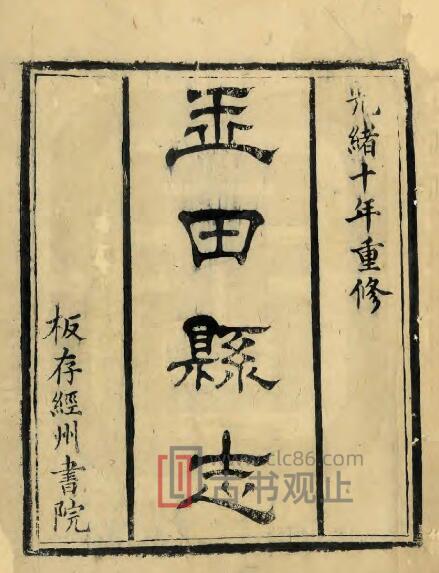 光緒十年重修
玉田縣志
板存經州書院
www.clc86.com
古书观止